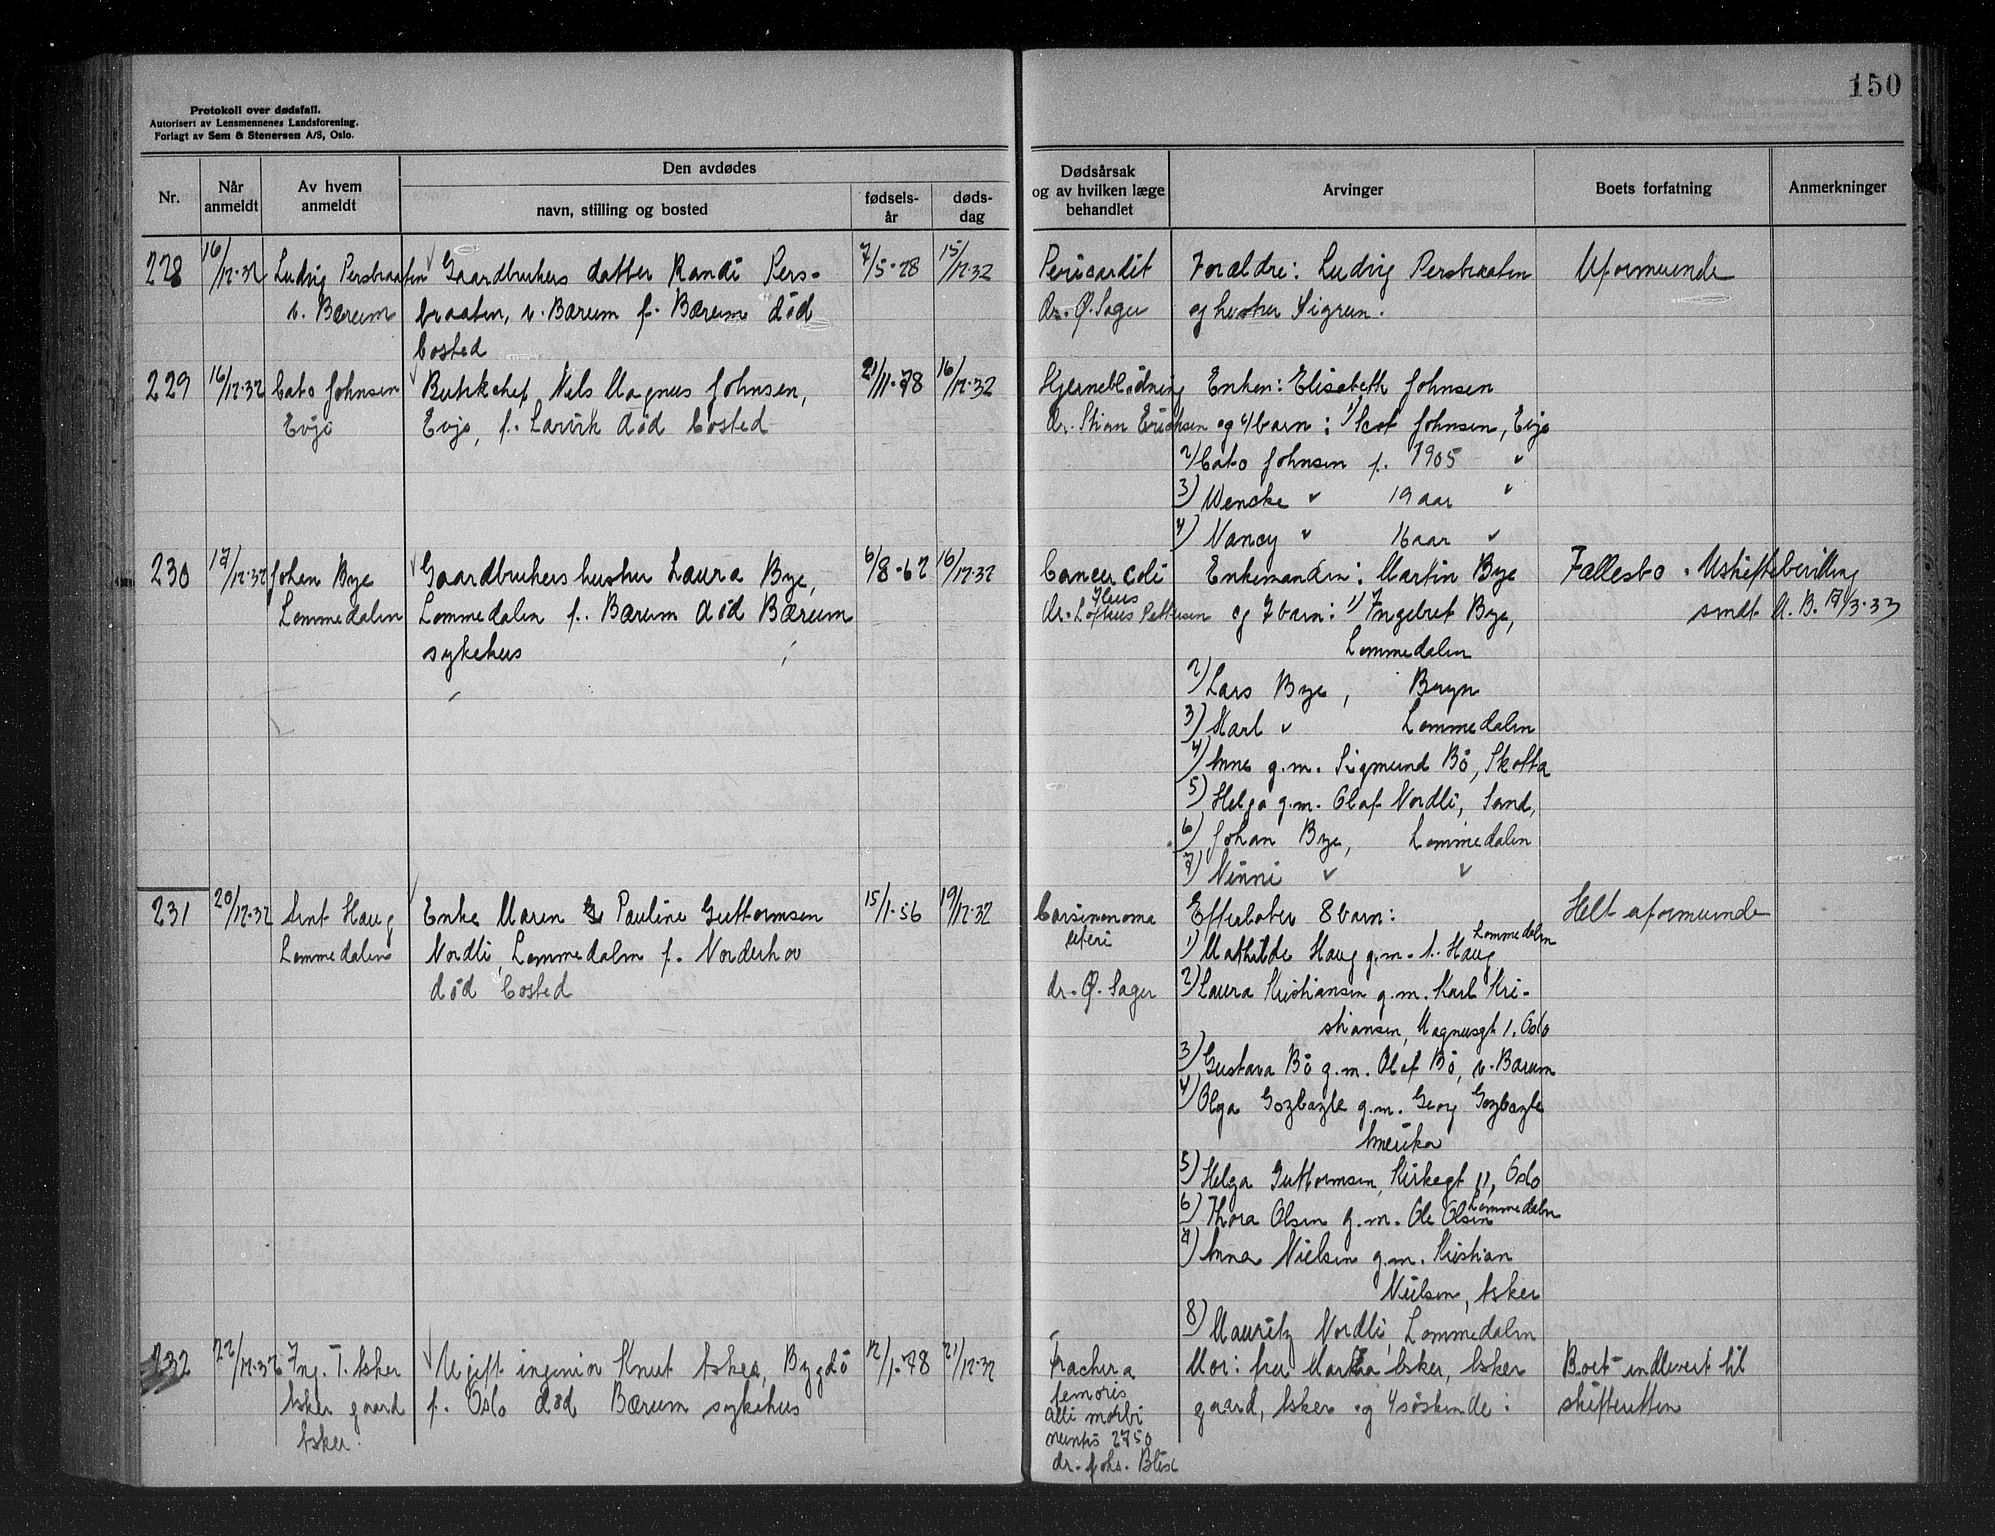 150
Protokoll over dødsfall.
Autorisert av Lensmennenes Landsforening.
Forlagt av Sem & Stenersen A/S, Oslo.
Nr.
Når anmeldt
Av hvem anmeldt
Den avdødes
navn, stilling og bosted
fødselsår
dødsdag
Dødsårsak og av hvilken læge behandlet
Arvinger
Boets forfatning
Anmerkninger
228 16/12-32 Ludvig Persbraaten Gaardbrukers datter Randi Pers- 7/5-28 15/12-32 Pericardit Forældre: Ludvig Persbraaten Uformuende
v. Bærum braaten, v. Bærum f. Bærum død dr. Ø. Sager og hustru Sigrun.
bosted
229 16/12-32 Cato Johnsen Butikchef Nils Magnus Johnsen, 21/11-78 16/12-32 Hjerneblødning Enken: Elisabeth Johnsen
Evje Evje, f. Larvik død bosted dr. Stian Erichsen og 4 barn: 1) Scot Johnsen, Evje
2) Cato Johnsen f. 1905 "
3) Wencke " 19 aar "
4) Nancy " 16 aar "
230 17/12-32 Johan Bye Gaardbrukers hustru Laura Bye, 6/8-62 16/12-32 Cancer coli Enkemanden: Martin Bye Fællesbo. Uskiftebevilling
Lommedalen Lommedalen f. Bærum død Bærum Ileus dr. Loftus Pettersen og 7 barn: 1) Ingebret Bye, smdt. A. B. 17/3-33
sykehus Lommedalen
2) Lars Bye, Bryn
3) Karl " Lommedalen
4) Anne g.m. Sigmund Bö, Skotta
5) Helga g.m. Olaf Nordli, Sand,
6) Johan Bye, Lommedalen
7) Ninni " "
231 20/12-32 Arnt Haug Enke Maren Pauline Guttormsen 15/1-56 19/12-32 Carsinonoma Efterlater 8 barn: Helt uformuende
Lommedalen Nordli, Lommedalen f. Norderhov uteri 1) Mathilde Haug g.m. A. Haug Lommedalen
død bosted dr. Ø. Sager 2) Laura Kristiansen g.m. Karl Kri-
stiansen, Magnusgt 1. Oslo
3) Gustava Bö g.m. Olaf Bö, v. Bærum
4) Olga Gozbazle g.m. Georg Gozbazle
Amerika
5) Helga Guttormsen, Kirkegt 11, Oslo
6) Thora Olsen g.m. Ole Olsen Lommedalen
7) Anna Nielsen g.m. Kristian
Nielsen, Asker
8) Mauritz Nordli, Lommedalen
232 22/12-32 Ing. T. Asker Ugift ingeniør Knut Asker, Bygdö 12/1-78 21/12-32 Fractura Mor: fru Martha Asker, Asker Boet indlevert til
Asker gaard f. Oslo død Bærum sykehus femoris gaard, Asker og 4 söskende: skifteretten
Asker. alii morbi
mentis 2750
dr. Johs. Blix